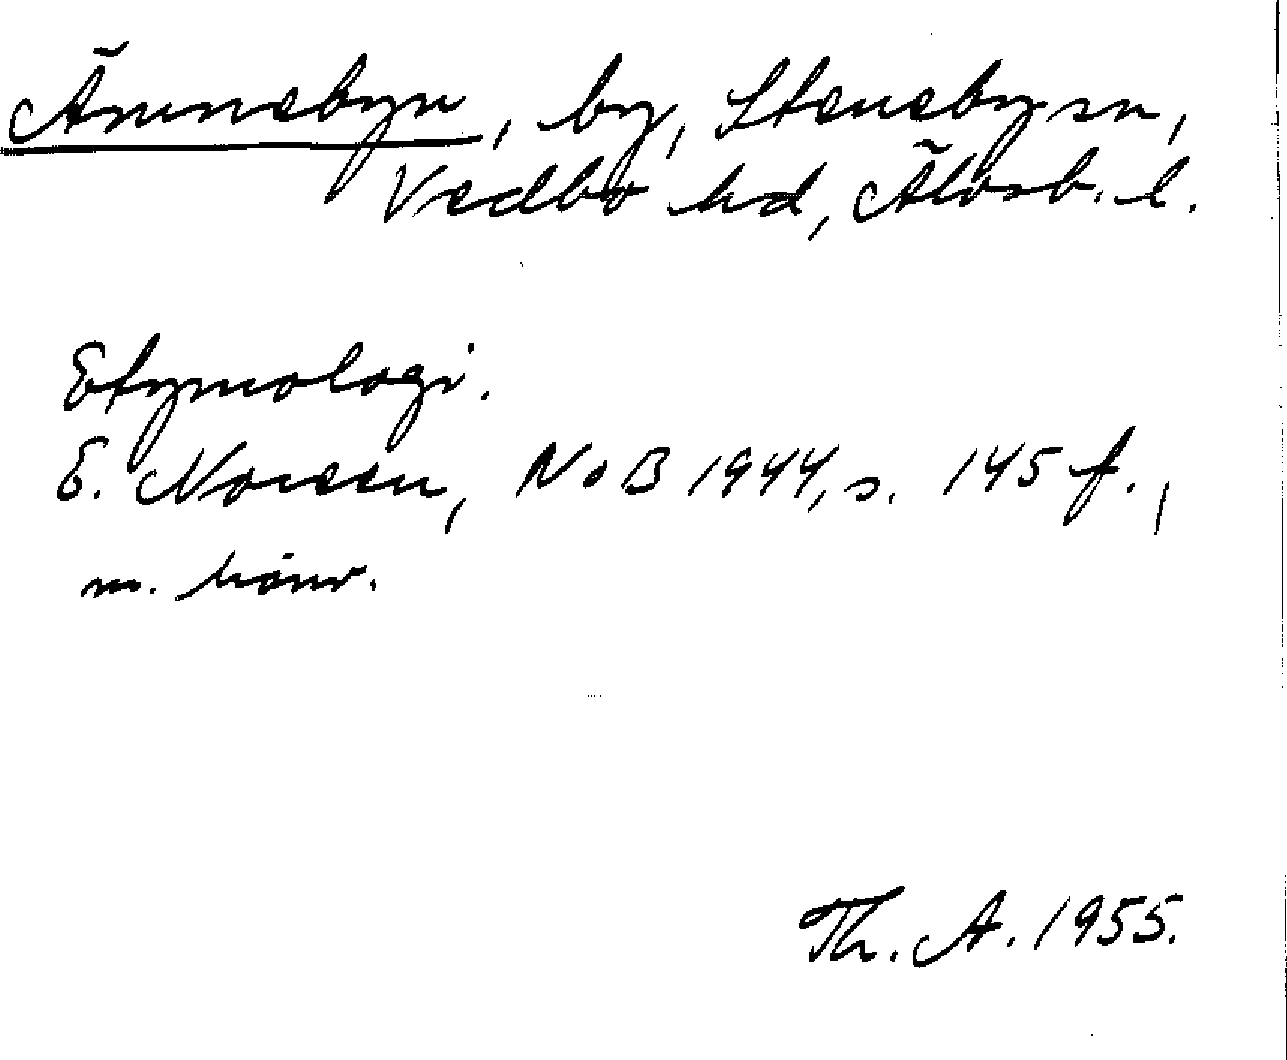 Ämnebyn, by, Steneby sn,
Vedbo hd, Älvsb. l.
Etymologi.
E. Noreen, NoB 1944, s. 145 f.,
m. hänv.
Th. A. 1955.